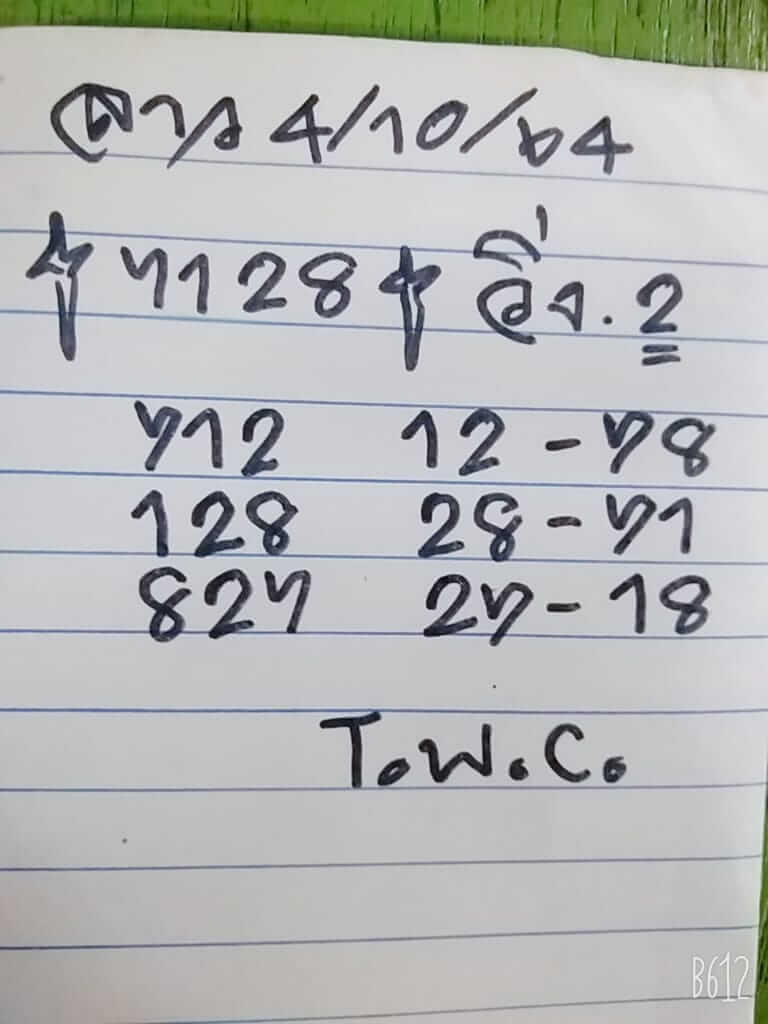 ลาว 4/10/64
7128 วิ่ง.2
712 12-78
128 28-71
827 27-18
T.W.C.
B612